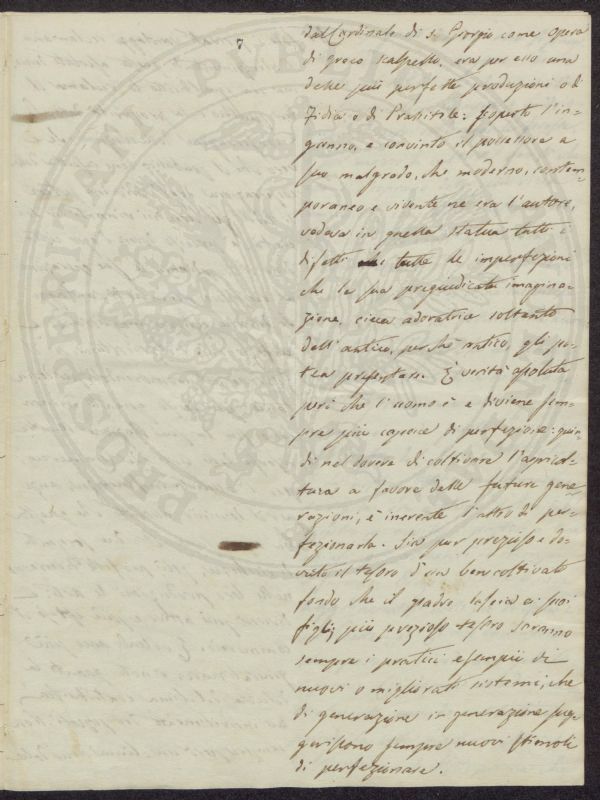 7
dal Cardinale di S. Giorgio come opera
di greco scalpello, era per esso una
delle più perfette produzioni o di
Fidia o di Prassitele: scoperto l'in-
ganno, e convinto il possessore a
suo malgrado, che moderno, contem-
poraneo e vivente ne era l'autore,
vedeva in quella statua tutti i
difetti tutte le imperfezioni
che la sua pregiudicata imagina-
zione, cieca adoratrice soltanto
dell'antico, perchè antico, gli po-
tea presentare. È verità assoluta
però che l'uomo è e diviene sem-
pre più capace di perfezione: quin-
di nel dovere di coltivare l'agricol-
tura a favore delle future gene-
razioni, è inerente l'altro di per-
fezionarla. Sia pur prezioso e do-
vuto il tesoro d'un ben coltivato
fondo che il padre lascia ai suoi
figli; più prezioso tesoro saranno
sempre i pratici esempii di
nuovi o migliorati sistemi, che
di generazione in generazione sug-
geriscono sempre nuovi stimoli
di perfezionare.
PROSPERI PVBL